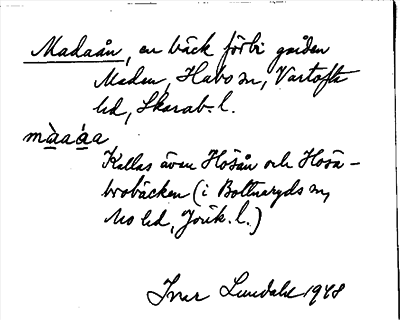 Madaån, en bäck förbi gården
Madan, Habo sn, Vartofta
hd, Skarab. l.
màaáa
Kallas även Hösån och Hösa-
brobäcken (i Bottnaryds sn,
Mo hd, Jönk. l.)
Ivar Lundahl 1948